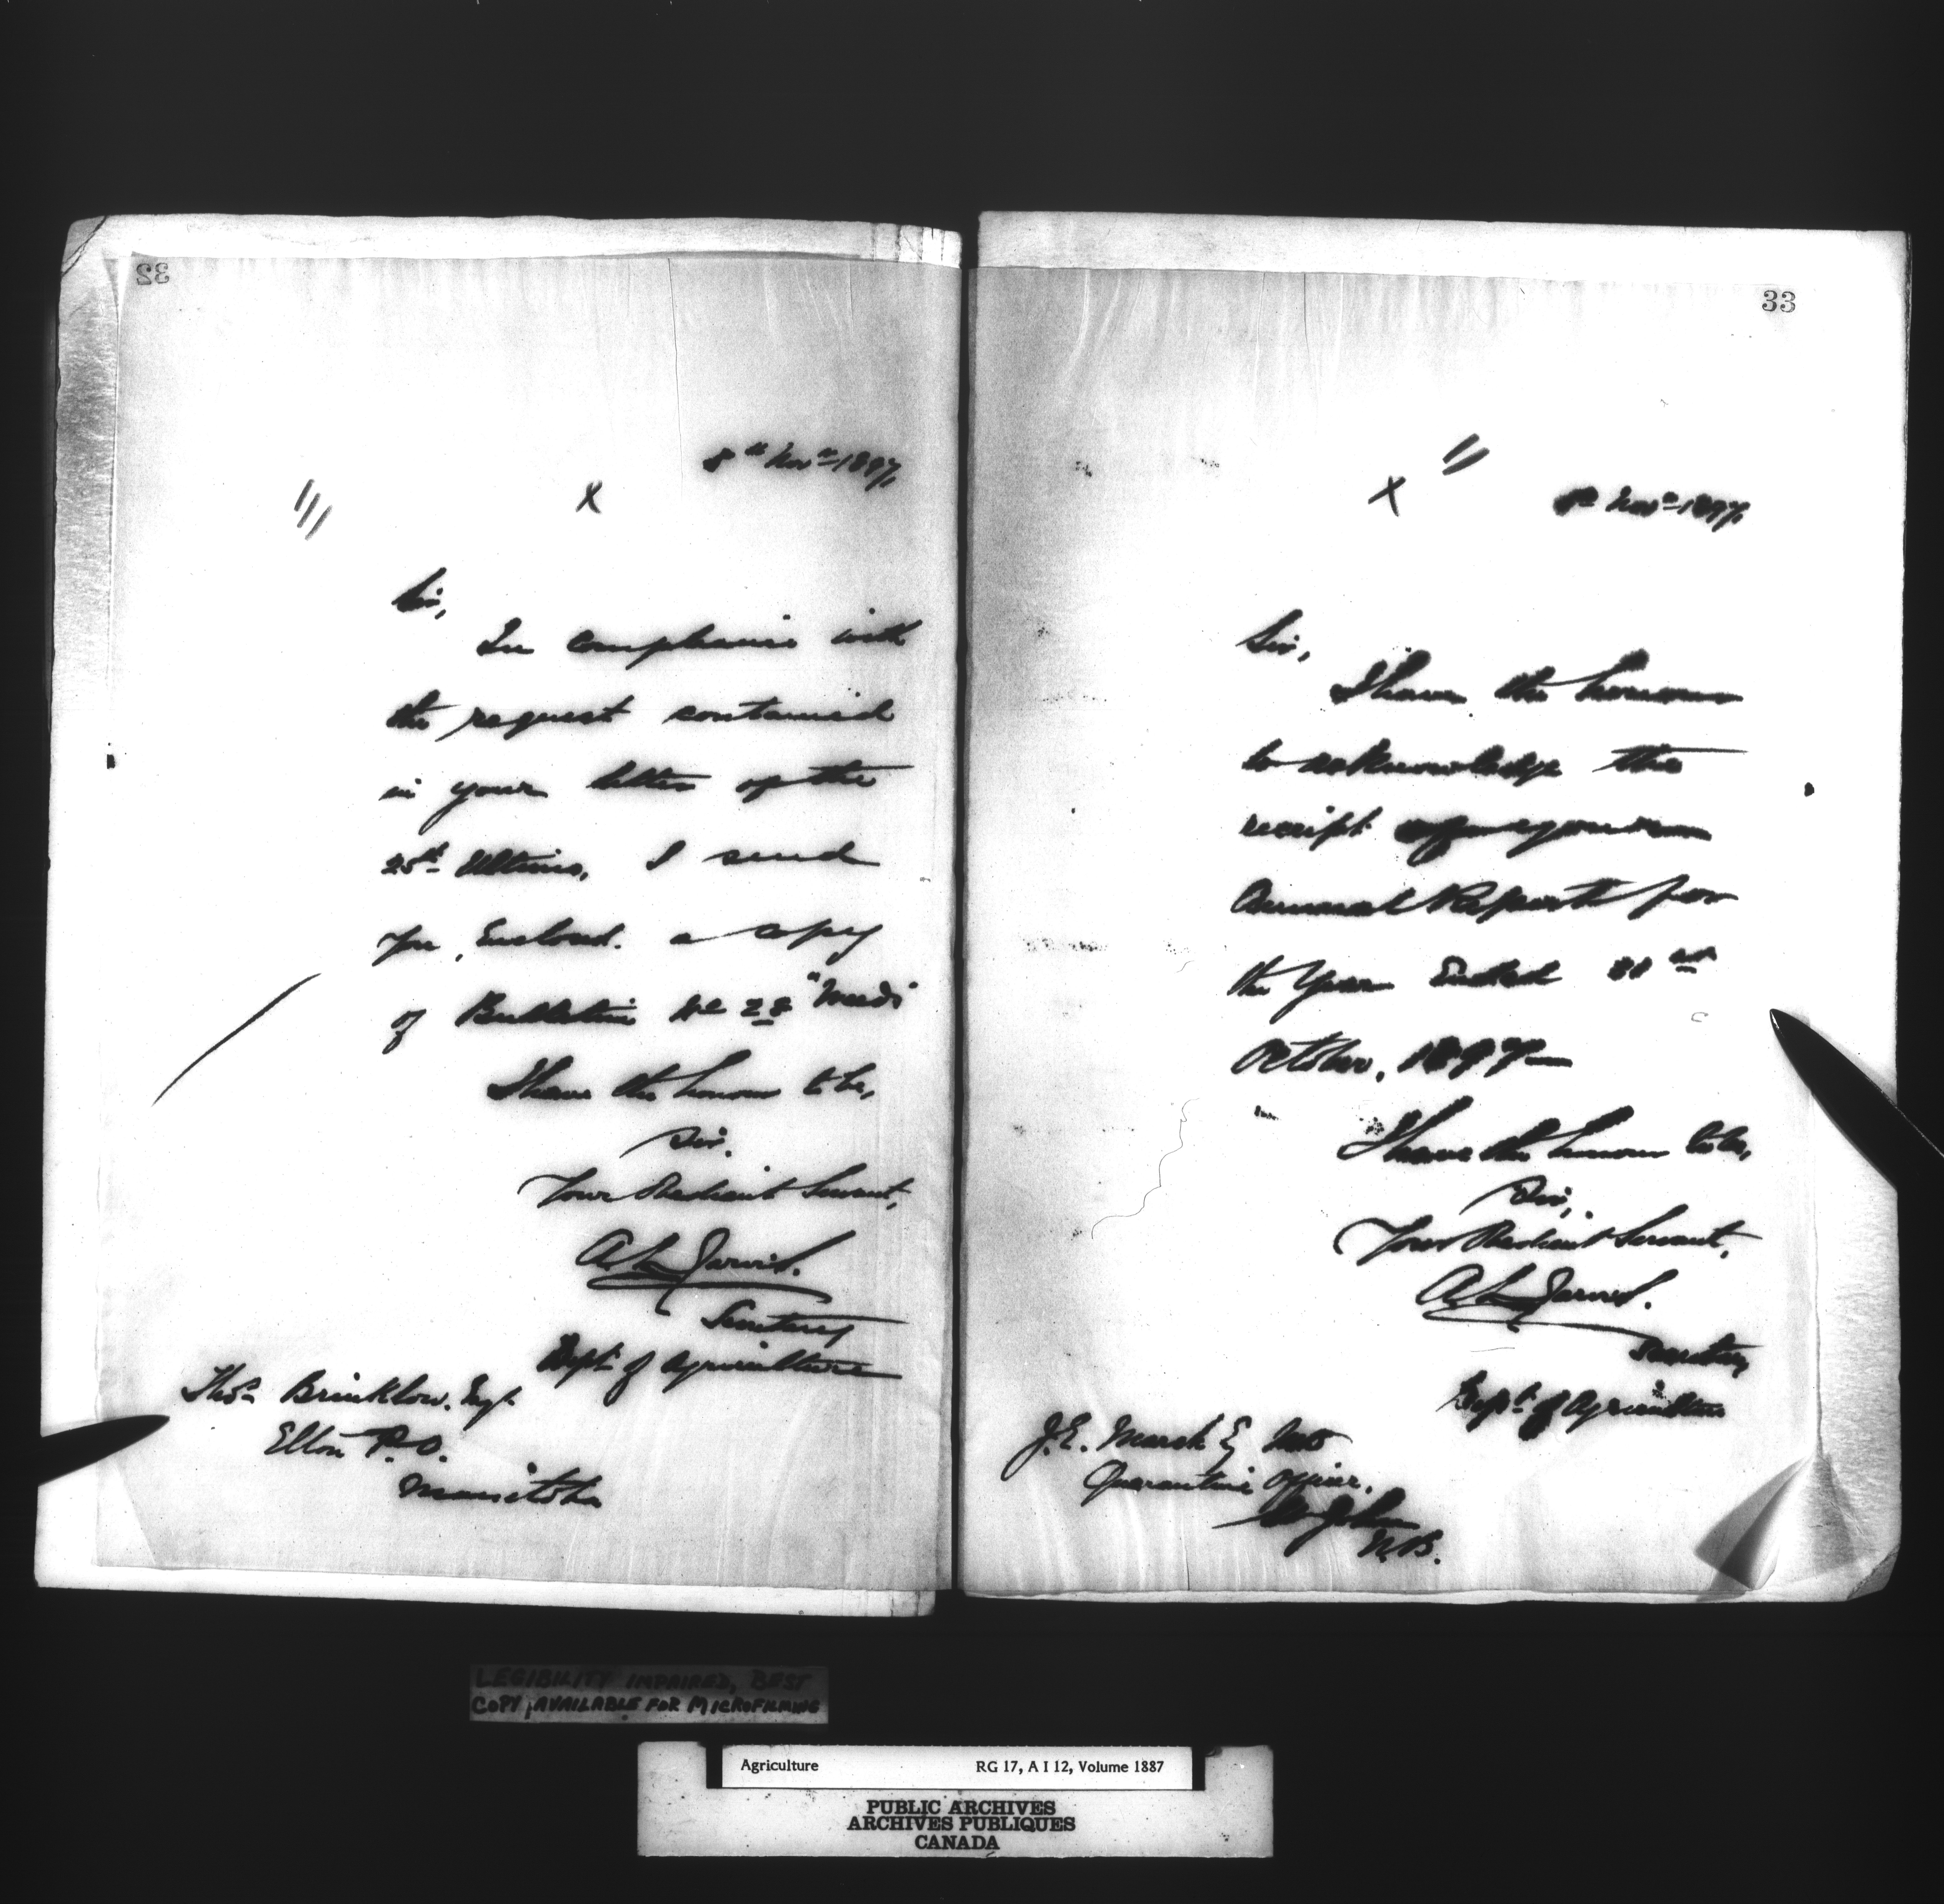 32
8th Nov. 1897.
X
Sir,
In compliance with
the request contained
in your letter of the
25th Ultimo, I send
you, Enclosed. a copy
of Bulletin No 28 "Weeds"
I have the honour to be,
Sir.
Your Obedient Servant,
A. L. Jarvis.
Secretary
Dept. of Agriculture
Thos. Brinklow. Esq.
Elton P.O.
Manitoba
33
X
8th Nov. 1897.
Sir,
I have the honour
to acknowledge the
receipt of your
Annual Report for
the Year Ended 31st
October, 1897
I have the honour to be,
Sir,
Your Obedient Servant,
A. L. Jarvis.
Secretary
Dept. of Agriculture
J. E. March Esq MD
Quarantine Officer,
St John
N.B.
LEGIBILITY IMPAIRED, BEST
COPY AVAILABLE FOR MICROFILMING
Agriculture RG 17, A I 12, Volume 1887
PUBLIC ARCHIVES
ARCHIVES PUBLIQUES
CANADA